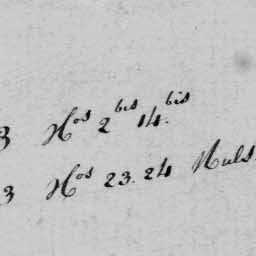 3 Nos 2 bis 14. bis
3 Nos 23. 24 Nuls.